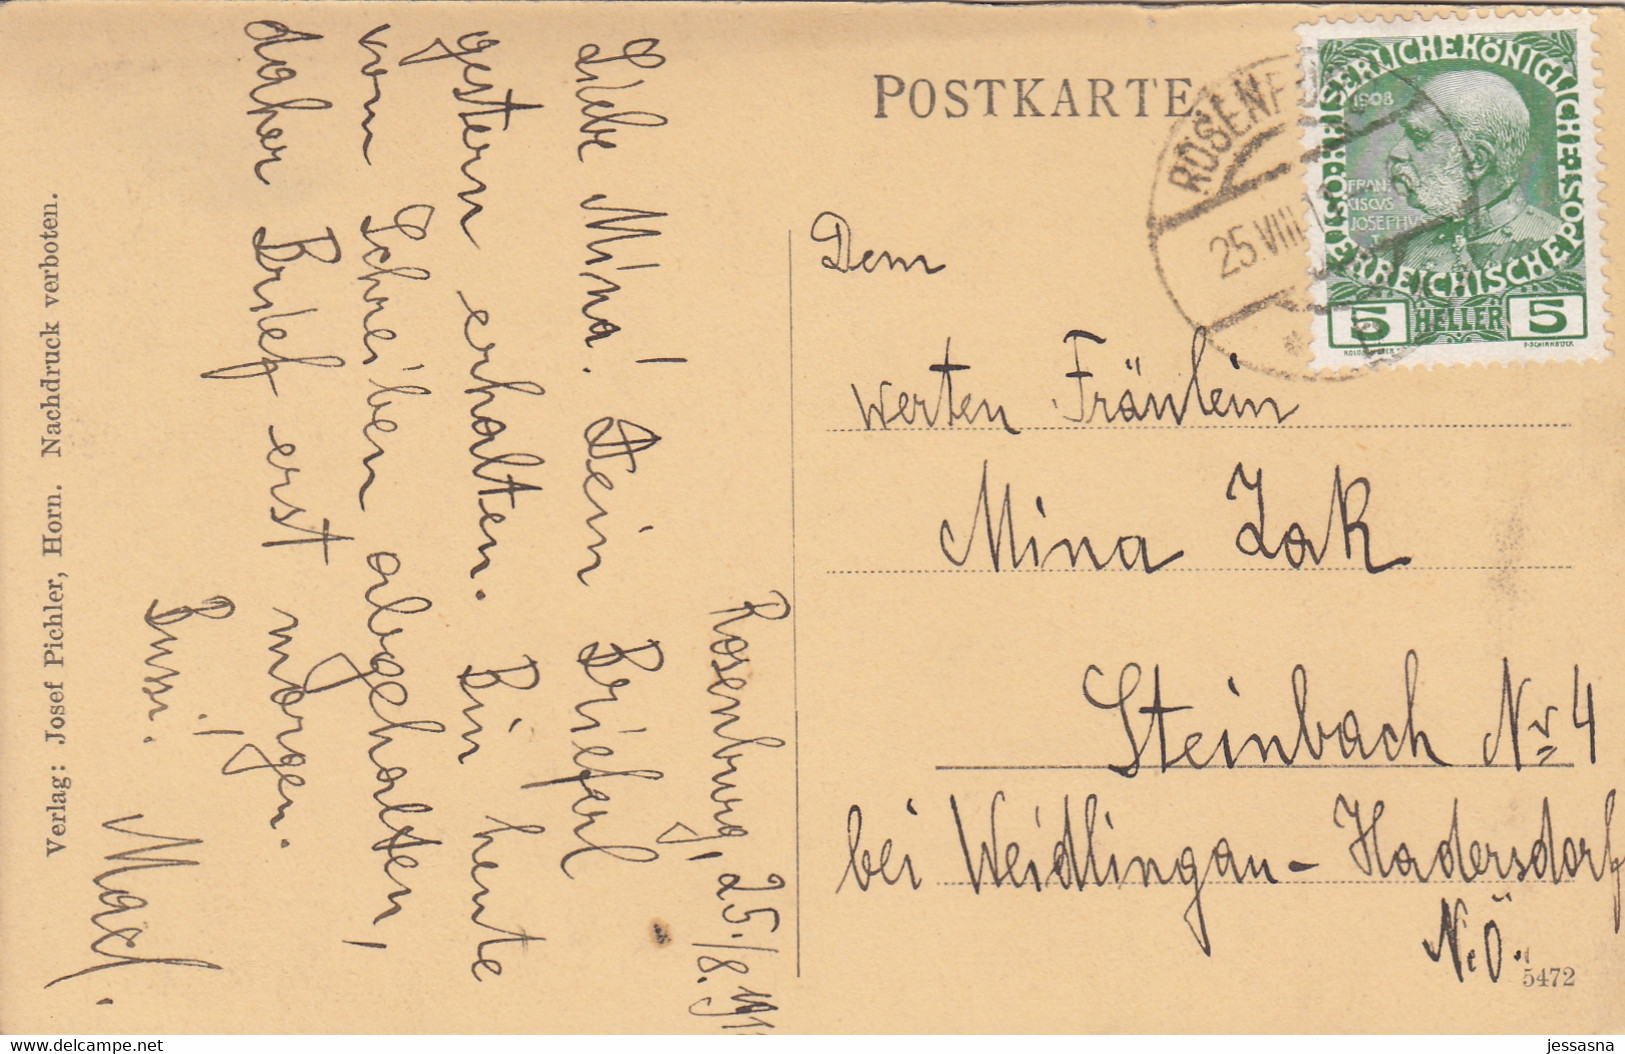 POSTKARTE
ROSENB
25.VIII.1
KAISERLICHEKÖNIGLICHE
ÖSTERREICHISCHEPOST
1908
FRAN
CISCVS
JOSEPHVS
I
5 HELLER 5
Dem
werten Fräulein
Mina Zak
Steinbach Nr 4
bei Weidlingau – Hadersdorf
N.Ö.
5472
Rosenburg, 25./8. 191
Liebe Mina! Dein Brieferl
gestern erhalten. Bin heute
vom Schreiben abgehalten,
daher Brief erst morgen.
Bussi!
Maxl.
Verlag: Josef Pichler, Horn. Nachdruck verboten.
www.delcampe.net
jessasna